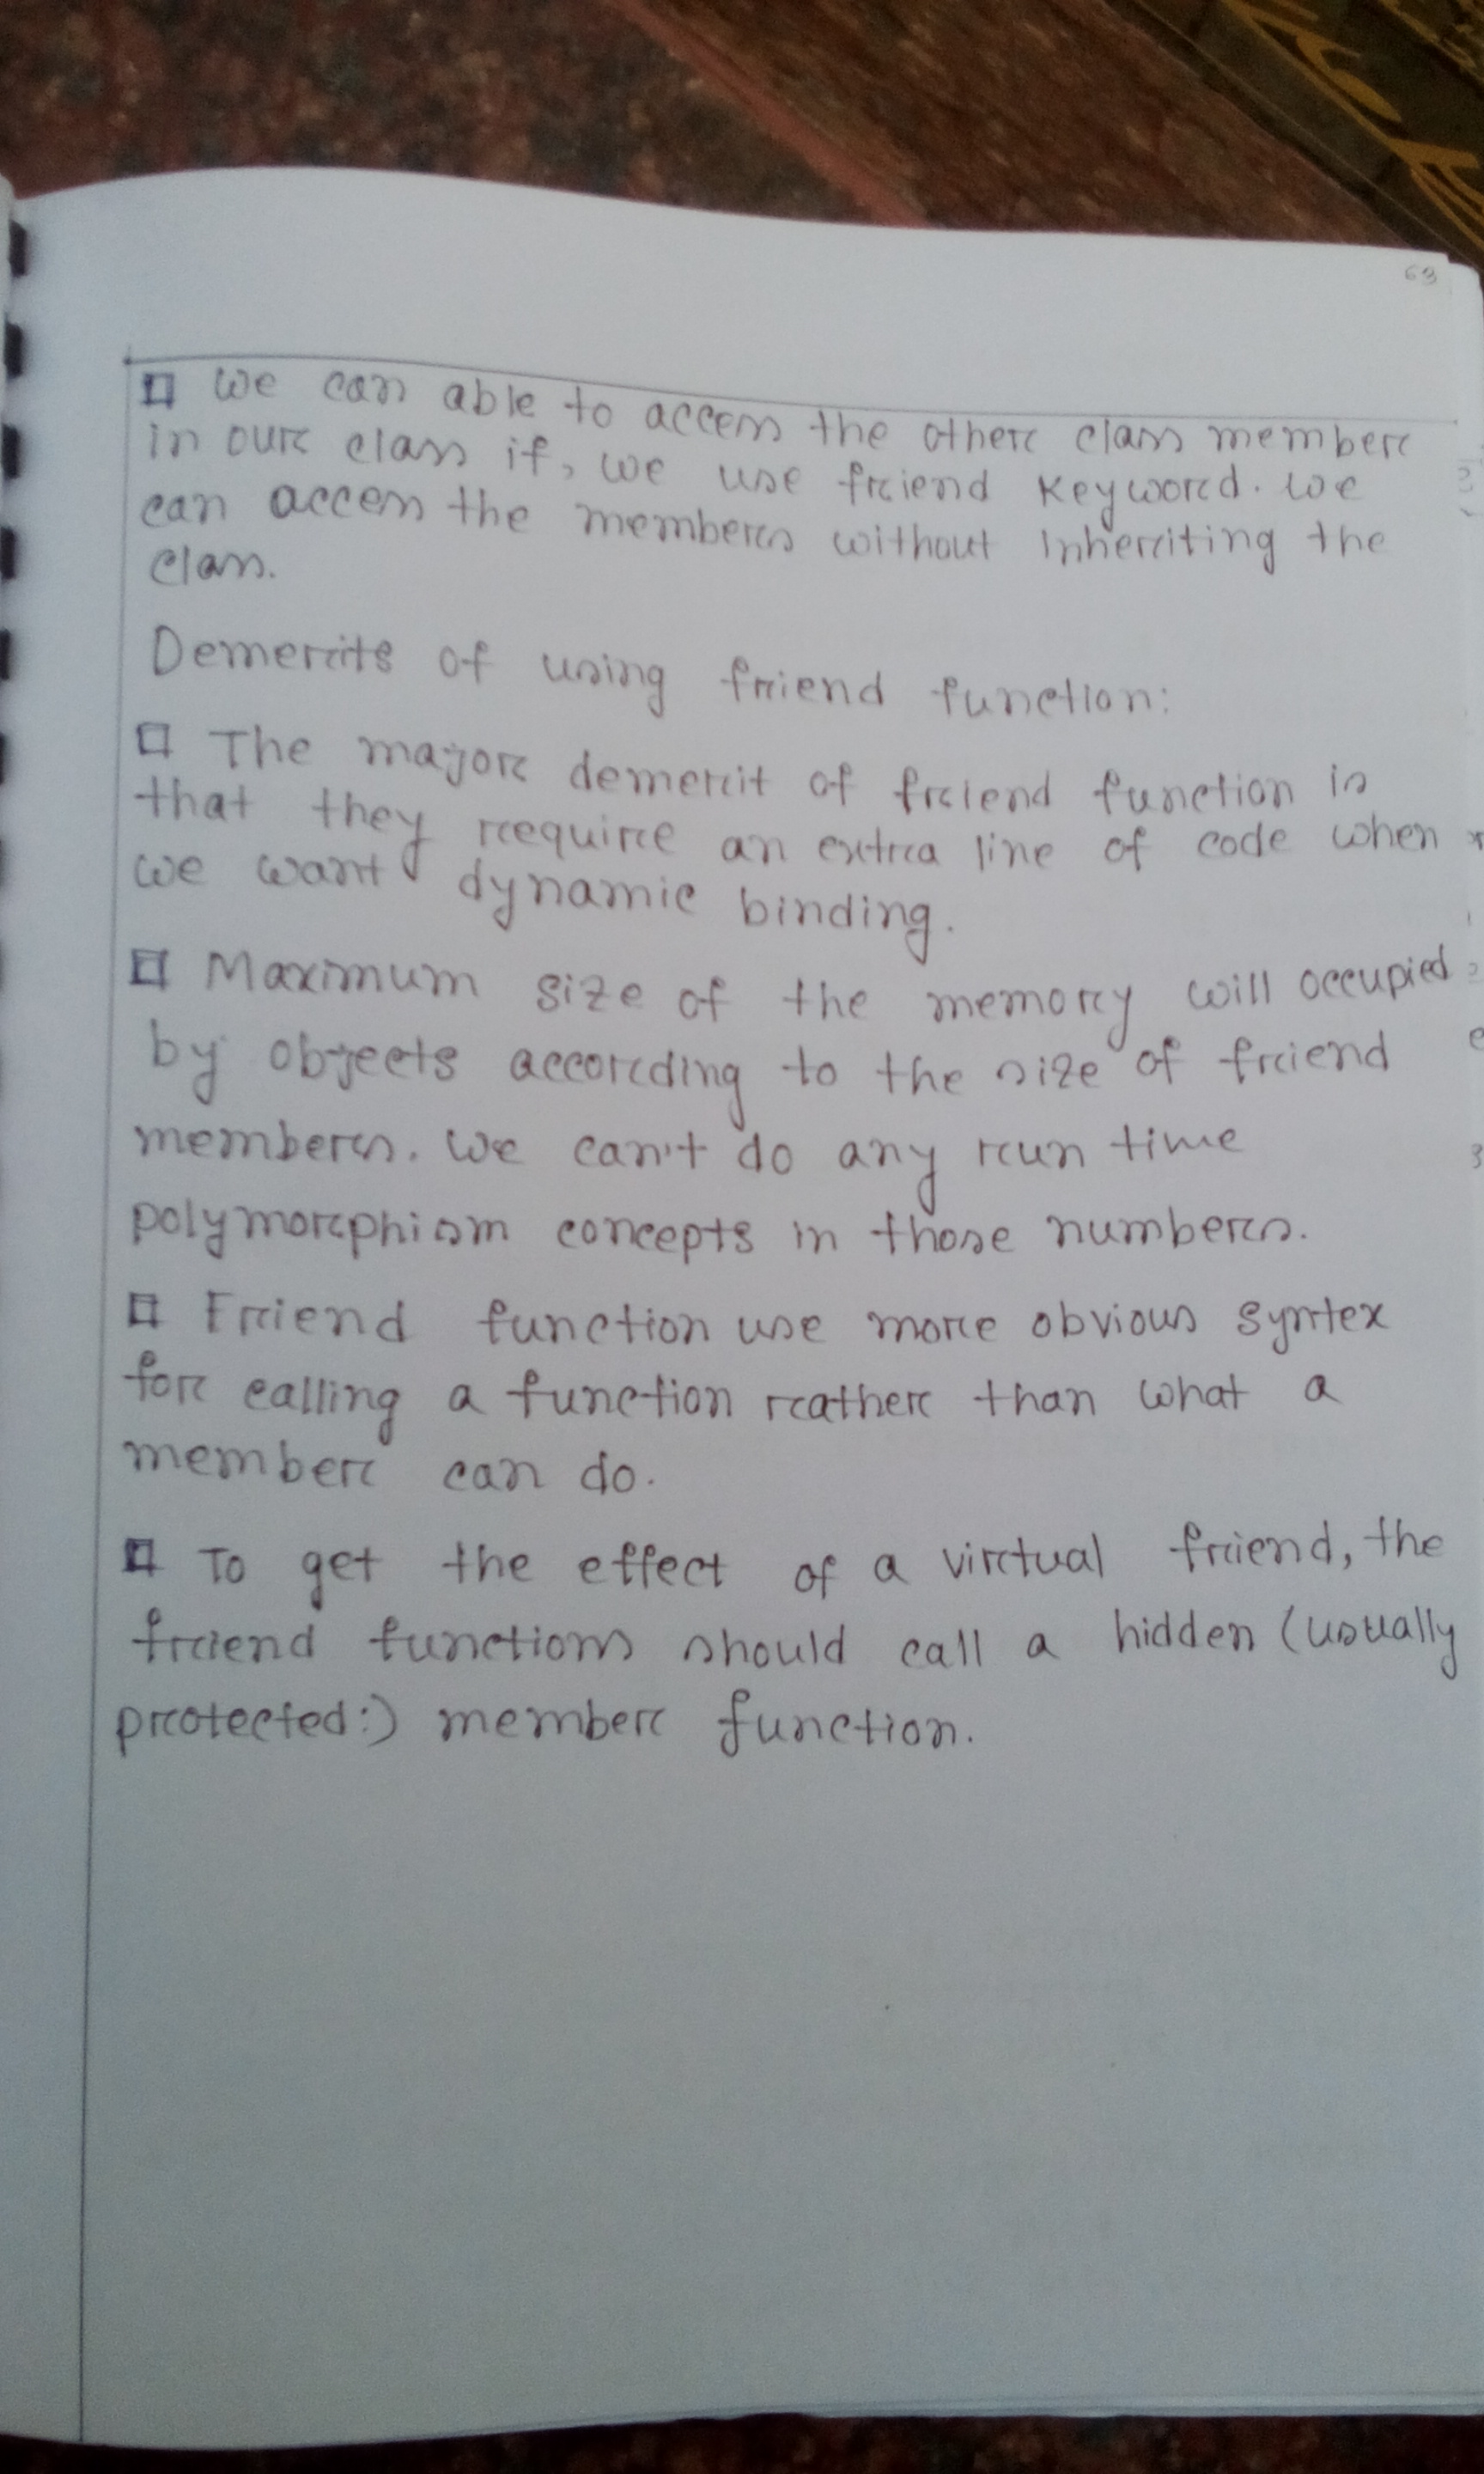 63
□ We can able to access the other class member
in our class if, we use friend keyword. We
can access the members without Inheriting the
class.
Demerits of using friend function:
□ The major demerit of friend function is
that they require an extra line of code when
we want dynamic binding.
□ Maximum size of the memory will occupied
by objects according to the size of friend
members. We can't do any run time
polymorphism concepts in those numbers.
□ Friend function use more obvious syntex
for calling a function rather than what a
member can do.
□ To get the effect of a virtual friend, the
friend functions should call a hidden (usually
protected:) member function.